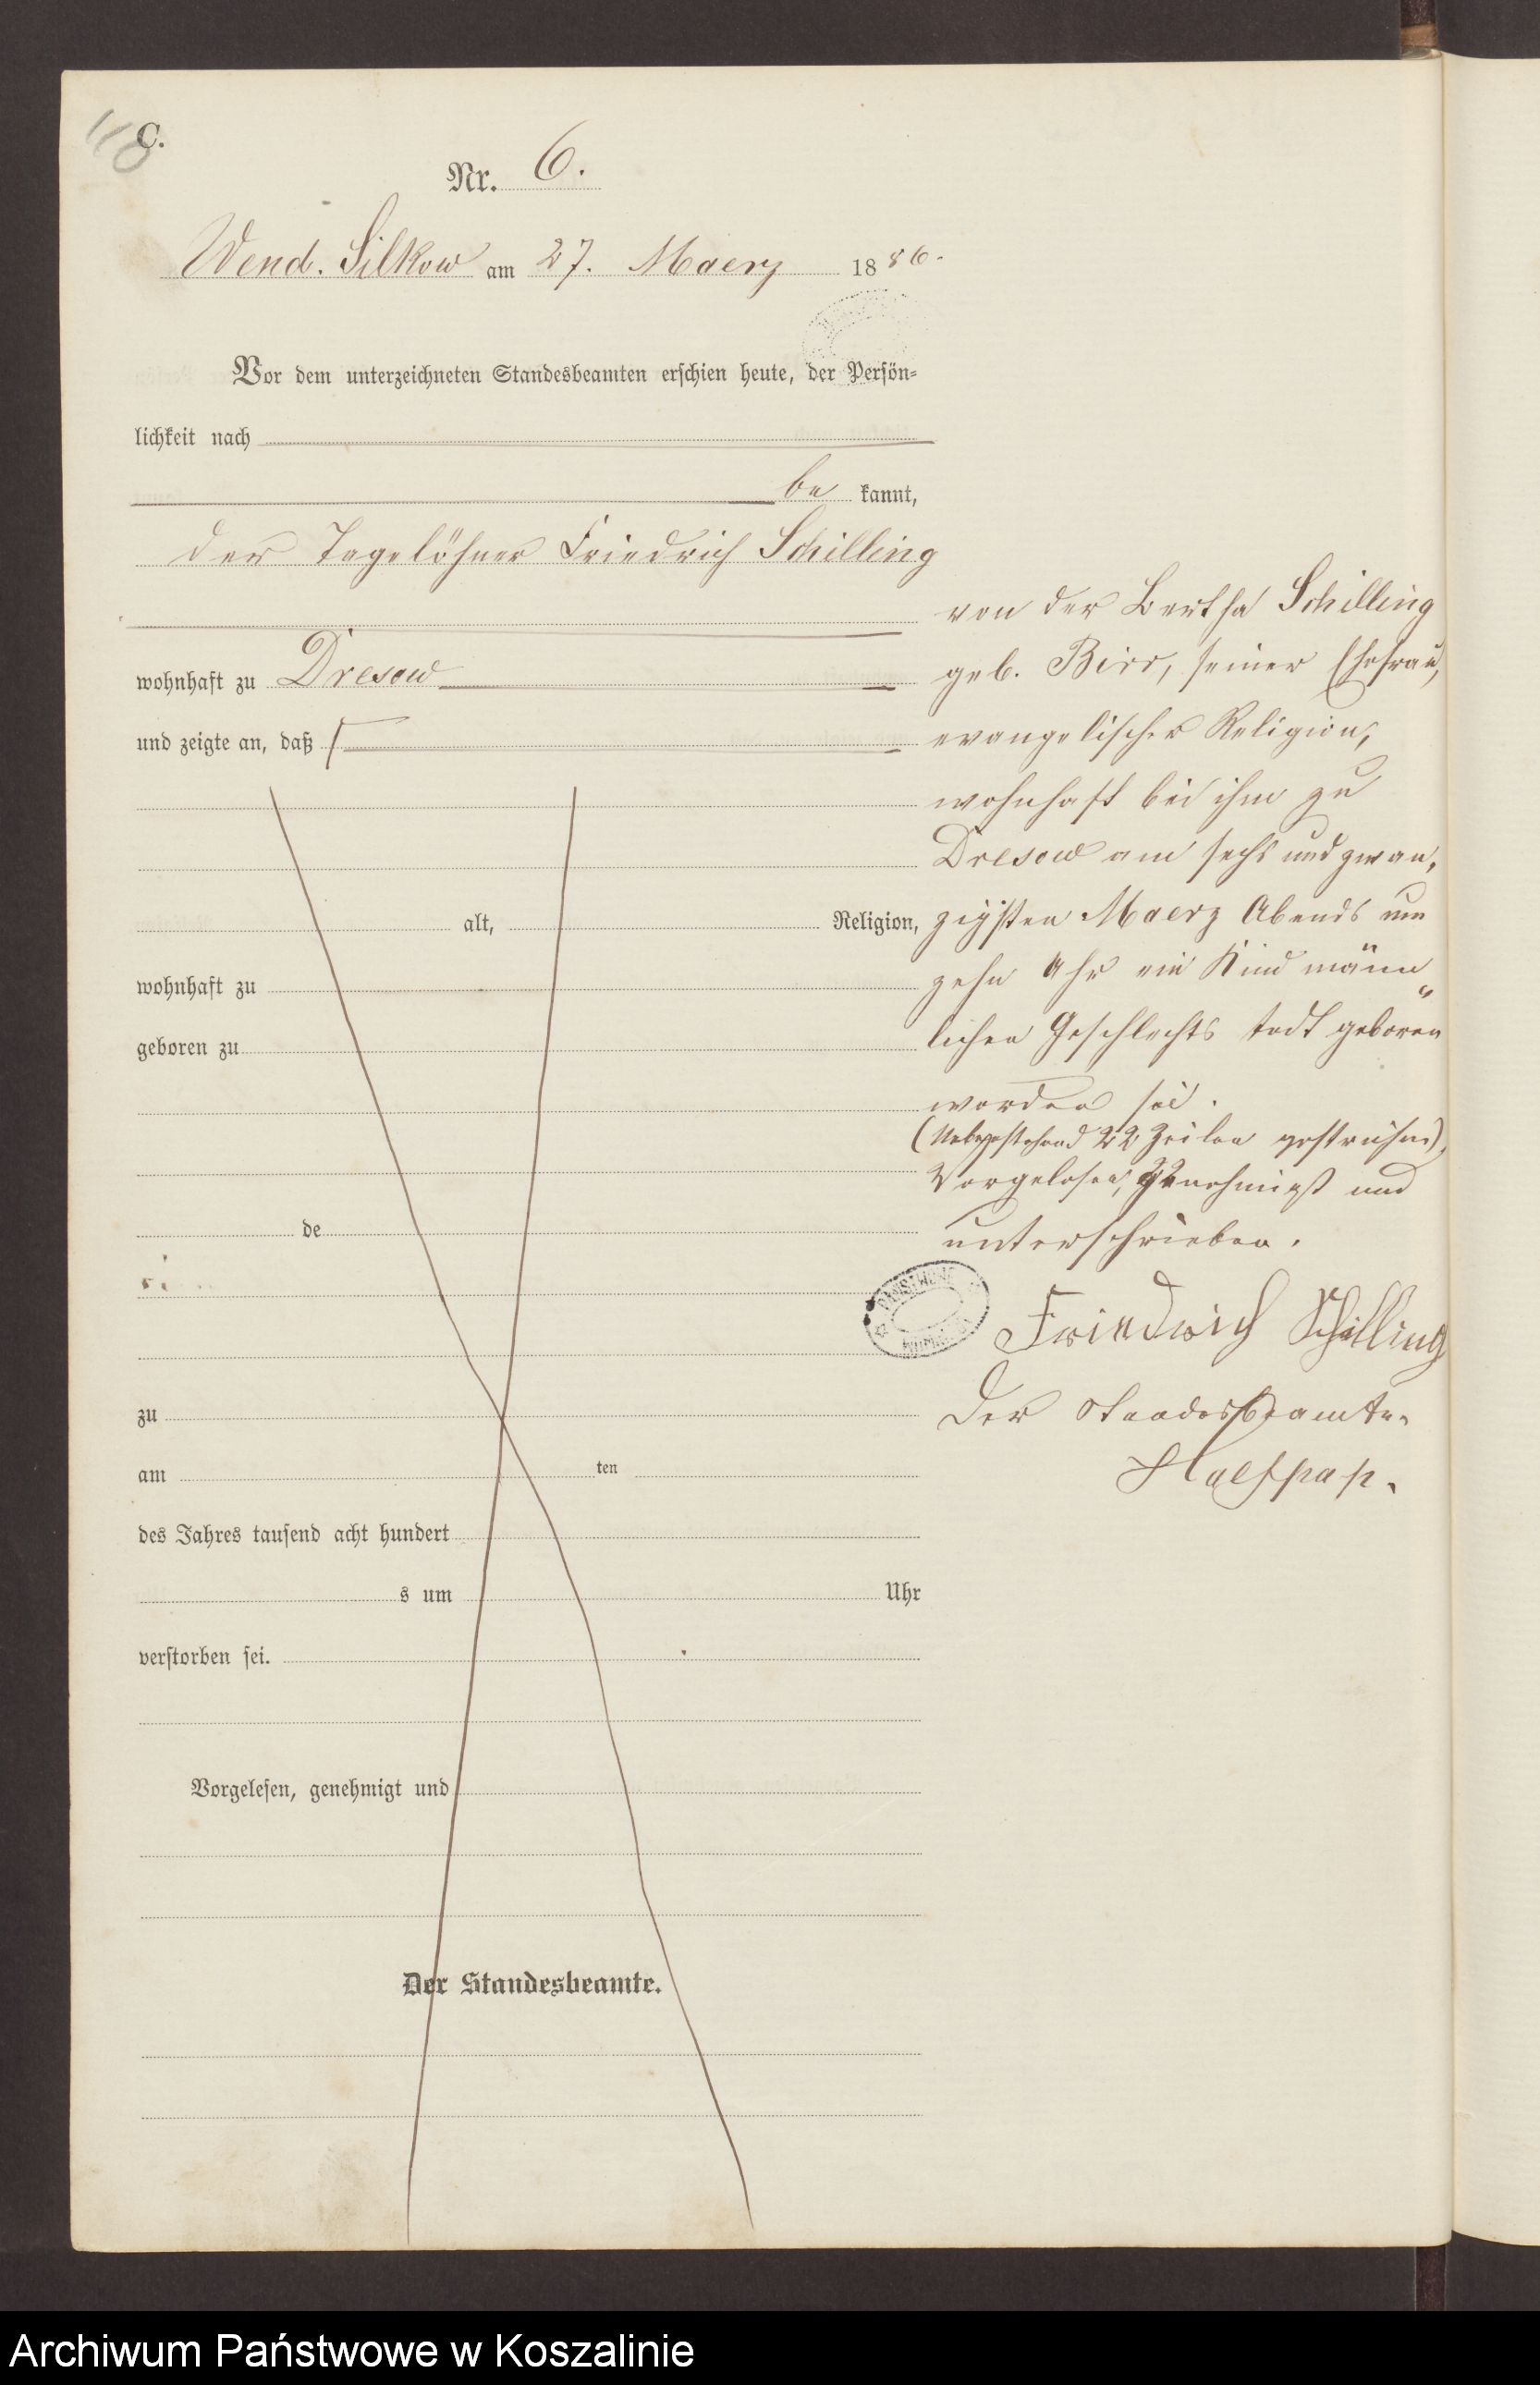 C.
Nr. 6.
Wend. Silkow am 27. Maerz 1886.
Vor dem unterzeichneten Standesbeamten erschien heute, der Persön-
lichkeit nach
be kannt,
der Tagelöhner Friedrich Schilling
wohnhaft zu Dresow
und zeigte an, daß
von der Bertha Schilling
geb. Birr, seiner Ehefrau,
evangelischer Religion,
wohnhaft bei ihm zu
Dresow am sechs und zwan,
zigsten Maerz Abends um
zehn Uhr ein Kind männ"
lichen Geschlechts todt geboren
worden sei.
(Nebenstehend 22 Zeilen gestrichen)
Vorgelesen, genehmigt und
unterschrieben.
Friedrich Schilling
Der Standesbeamte.
alt, Religion,
wohnhaft zu
geboren zu
de
zu
am ten
des Jahres tausend acht hundert
s um Uhr
verstorben sei.
Vorgelesen, genehmigt und
Der Standesbeamte.
Archiwum Państwowe w Koszalinie